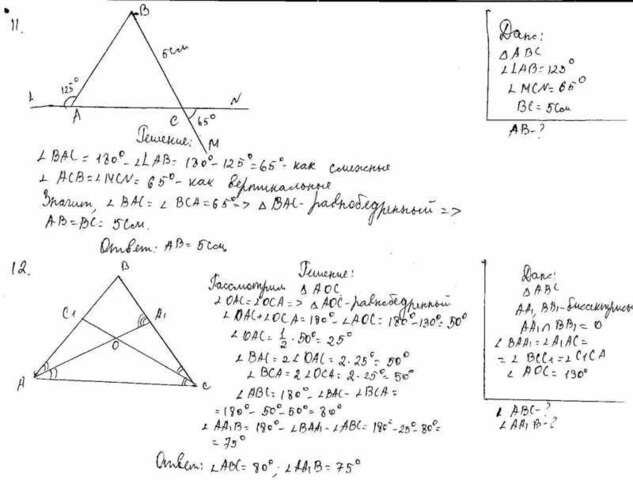 11.
B
5см
125°
L
A
C
N
65°
M
Дано:
△ABC
∠LAB=125°
∠MCN=65°
BC=5см
AB-?
Решение:
∠BAC = 180° - ∠LAB = 180° - 125° = 65° - как смежные
∠ACB = ∠MCN = 65° - как вертикальные
Значит, ∠BAC = ∠BCA = 65° => △BAC - равнобедренный =>
AB = BC = 5см.
Ответ: AB = 5см
12.
B
C1
A1
O
A
C
Решение:
Рассмотрим △AOC
∠OAC = ∠OCA => △AOC - равнобедренный
∠OAC + ∠OCA = 180° - ∠AOC = 180° - 130° = 50°
∠OAC = 1/2 · 50° = 25°
∠BAC = 2∠OAC = 2 · 25° = 50°
∠BCA = 2∠OCA = 2 · 25° = 50°
∠ABC = 180° - ∠BAC - ∠BCA =
= 180° - 50° - 50° = 80°
∠AA1B = 180° - ∠BAA1 - ∠ABC = 180° - 25° - 80° =
= 75°
Ответ: ∠ABC = 80°; ∠AA1B = 75°
Дано:
△ABC
AA1, BB1 - биссектрисы
AA1 ∩ BB1 = O
∠BAA1 = ∠A1AC =
= ∠BCC1 = ∠C1CA
∠AOC = 130°
∠ABC-?
∠AA1B-?